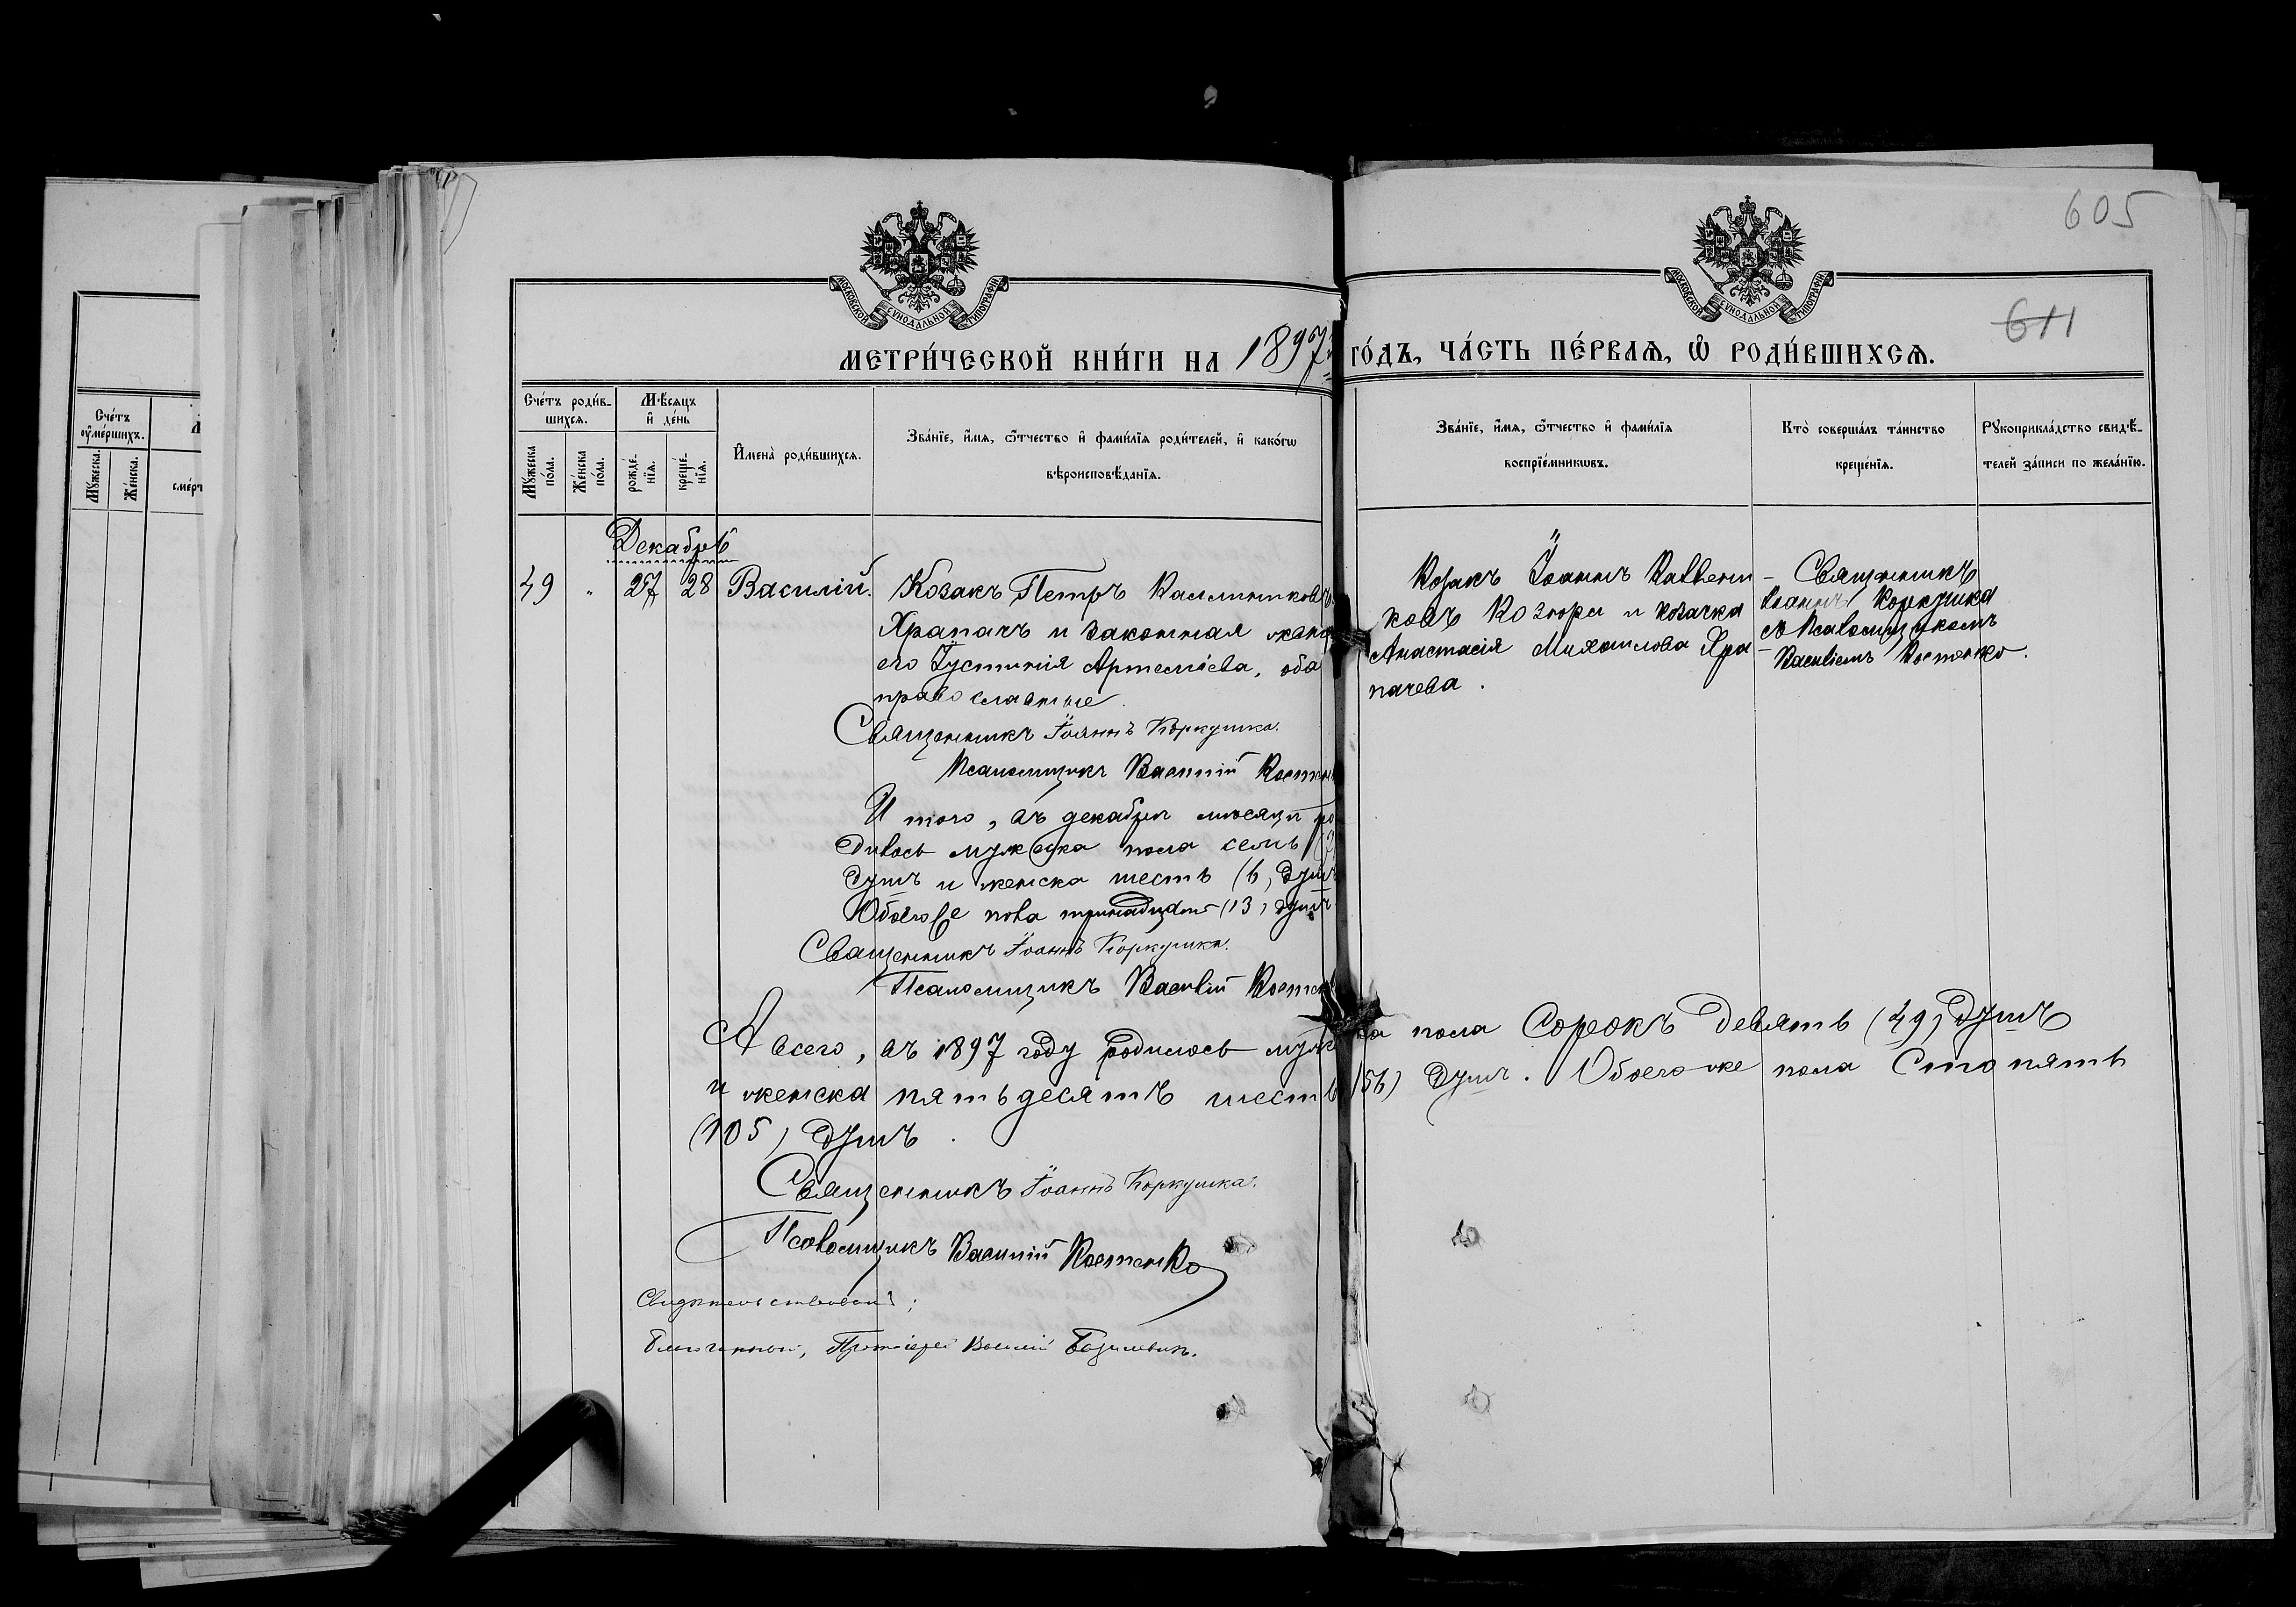 605
611
МОСКОВСКОЙ СУНОДАЛЬНОЙ ТИПОГРАФІИ
МОСКОВСКОЙ СУНОДАЛЬНОЙ ТИПОГРАФІИ
МЕТРИ́ЧЕСКОЙ КНИ́ГИ НА 1897 ГО́ДЪ, ЧА́СТЬ ПЕ́РВАѦ, Ѡ҆ РОДИ́ВШИХСѦ.
Сче́тъ оу҆ме́ршихъ.
Мꙋ́жеска.
Же́нска.
Сче́тъ роди́в-
шихся.
Мꙋ́жеска по́ла.
Же́нска по́ла.
Мѣ́сяцъ и҆ де́нь
рожде́-
нїя.
креще́-
нїя.
И҆мена̀ роди́вшихся.
Зва́нїе, и҆́мя, ѻ҆́тчество и҆ фами́лїя роди́телей, и҆ како́гѡ
вѣроисповѣ́данїя.
Зва́нїе, и҆́мя, ѻ҆́тчество и҆ фами́лїя
воспрїе́мникѡвъ.
Кто̀ соверша́лъ та́инство
креще́нїя.
Рꙋкоприкла́дство свидѣ́-
телей за́писи по жела́нїю.
Декабрь
49 " 27 28 Василій. Козакъ Петръ Каллиниковъ
Храпачъ и законная жена
его Іустинія Артеміева, оба
православные.
Козакъ Іоаннъ
ковъ и козачка
Анастасія Михаилова Хра-
пачева.
Священникъ
Іоаннъ Коркушка
съ Псаломщикомъ
Василіемъ Костенко.
Священникъ Іоаннъ Коркушка.
Псаломщикъ Василій
И того, въ декабрѣ мѣсяцѣ ро
дилось мужеска пола семь (7
душъ и женска шесть (6) душъ
Обоего же пола тринадцать (13) душъ
Священникъ Іоаннъ Коркушка.
Псаломщикъ Василій
А всего, въ 1897 году родилось муж ка пола Сорокъ девять (49) душъ
и женска пятьдесятъ шесть (56) душъ. Обоего же пола Сто пять
(105) душъ.
Священникъ Іоаннъ Коркушка.
Псаломщикъ Василій Костенко
Свидѣтельствовалъ;
благочинный, Протоіерей Василій Базилевичъ.